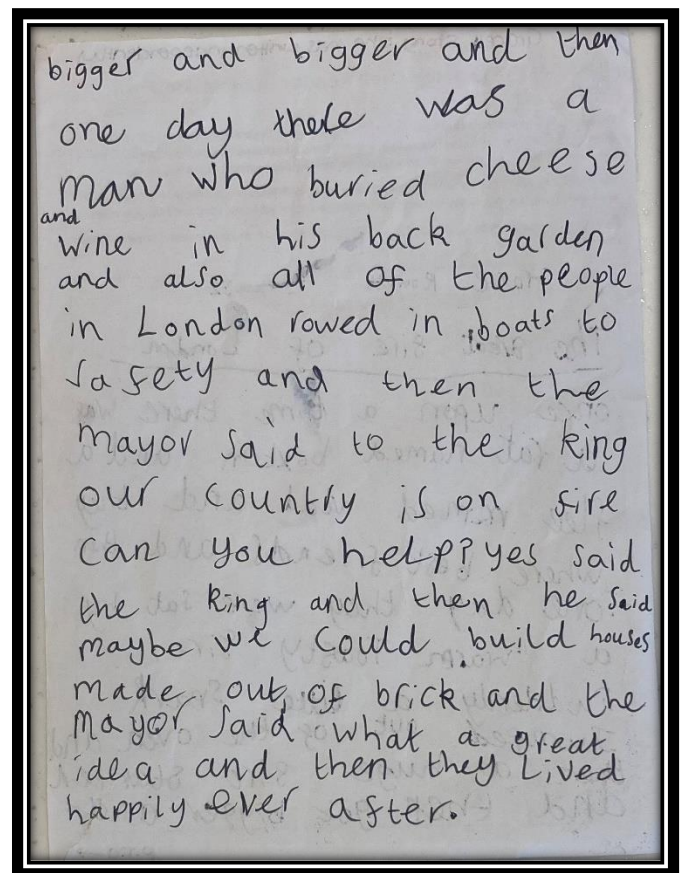 bigger and bigger and then
one day there was a
man who buried cheese
and
wine in his back garden
and also all of the people
in London rowed in boats to
safety and then the
mayor said to the king
our country is on fire
can you help? yes said
the king and then he said
maybe we could build houses
made out of brick and the
mayor said what a great
idea and then they Lived
happily ever after.